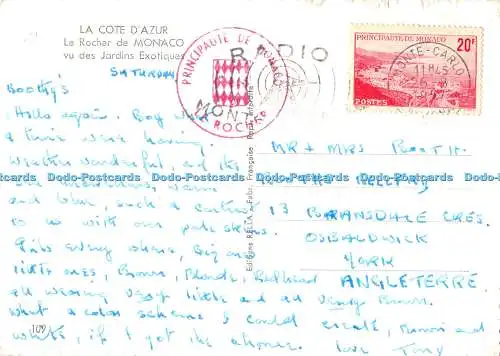 LA COTE D'AZUR
Le Rocher de MONACO
vu des Jardins Exotiques
PRINCIPAUTE DE MONACO
LE ROCHER
RADIO
MONTE
PRINCIPAUTE DE MONACO
20F
POSTES
MONTE-CARLO
Saturday
Booths
Hello again. Boy what
a time were having.
Weather wonderful, and the
sea marvellous, warm
and blue, such a contrast
to us with our pale skins.
Girls every where, Big ones
little ones, Brown, Blonde,
all wearing very little and all very Brown.
what a color scheme I could create,
white, if I got the chance.
love Tony
109
Editions RELLA, Fabr. Française
MR + MRS BOOTH
13 BRANSDALE CRES.
OSBALDWICK
YORK
ANGLETERRE.
Dodo-Postcards Dodo-Postcards Dodo-Postcards Dodo-Postcards